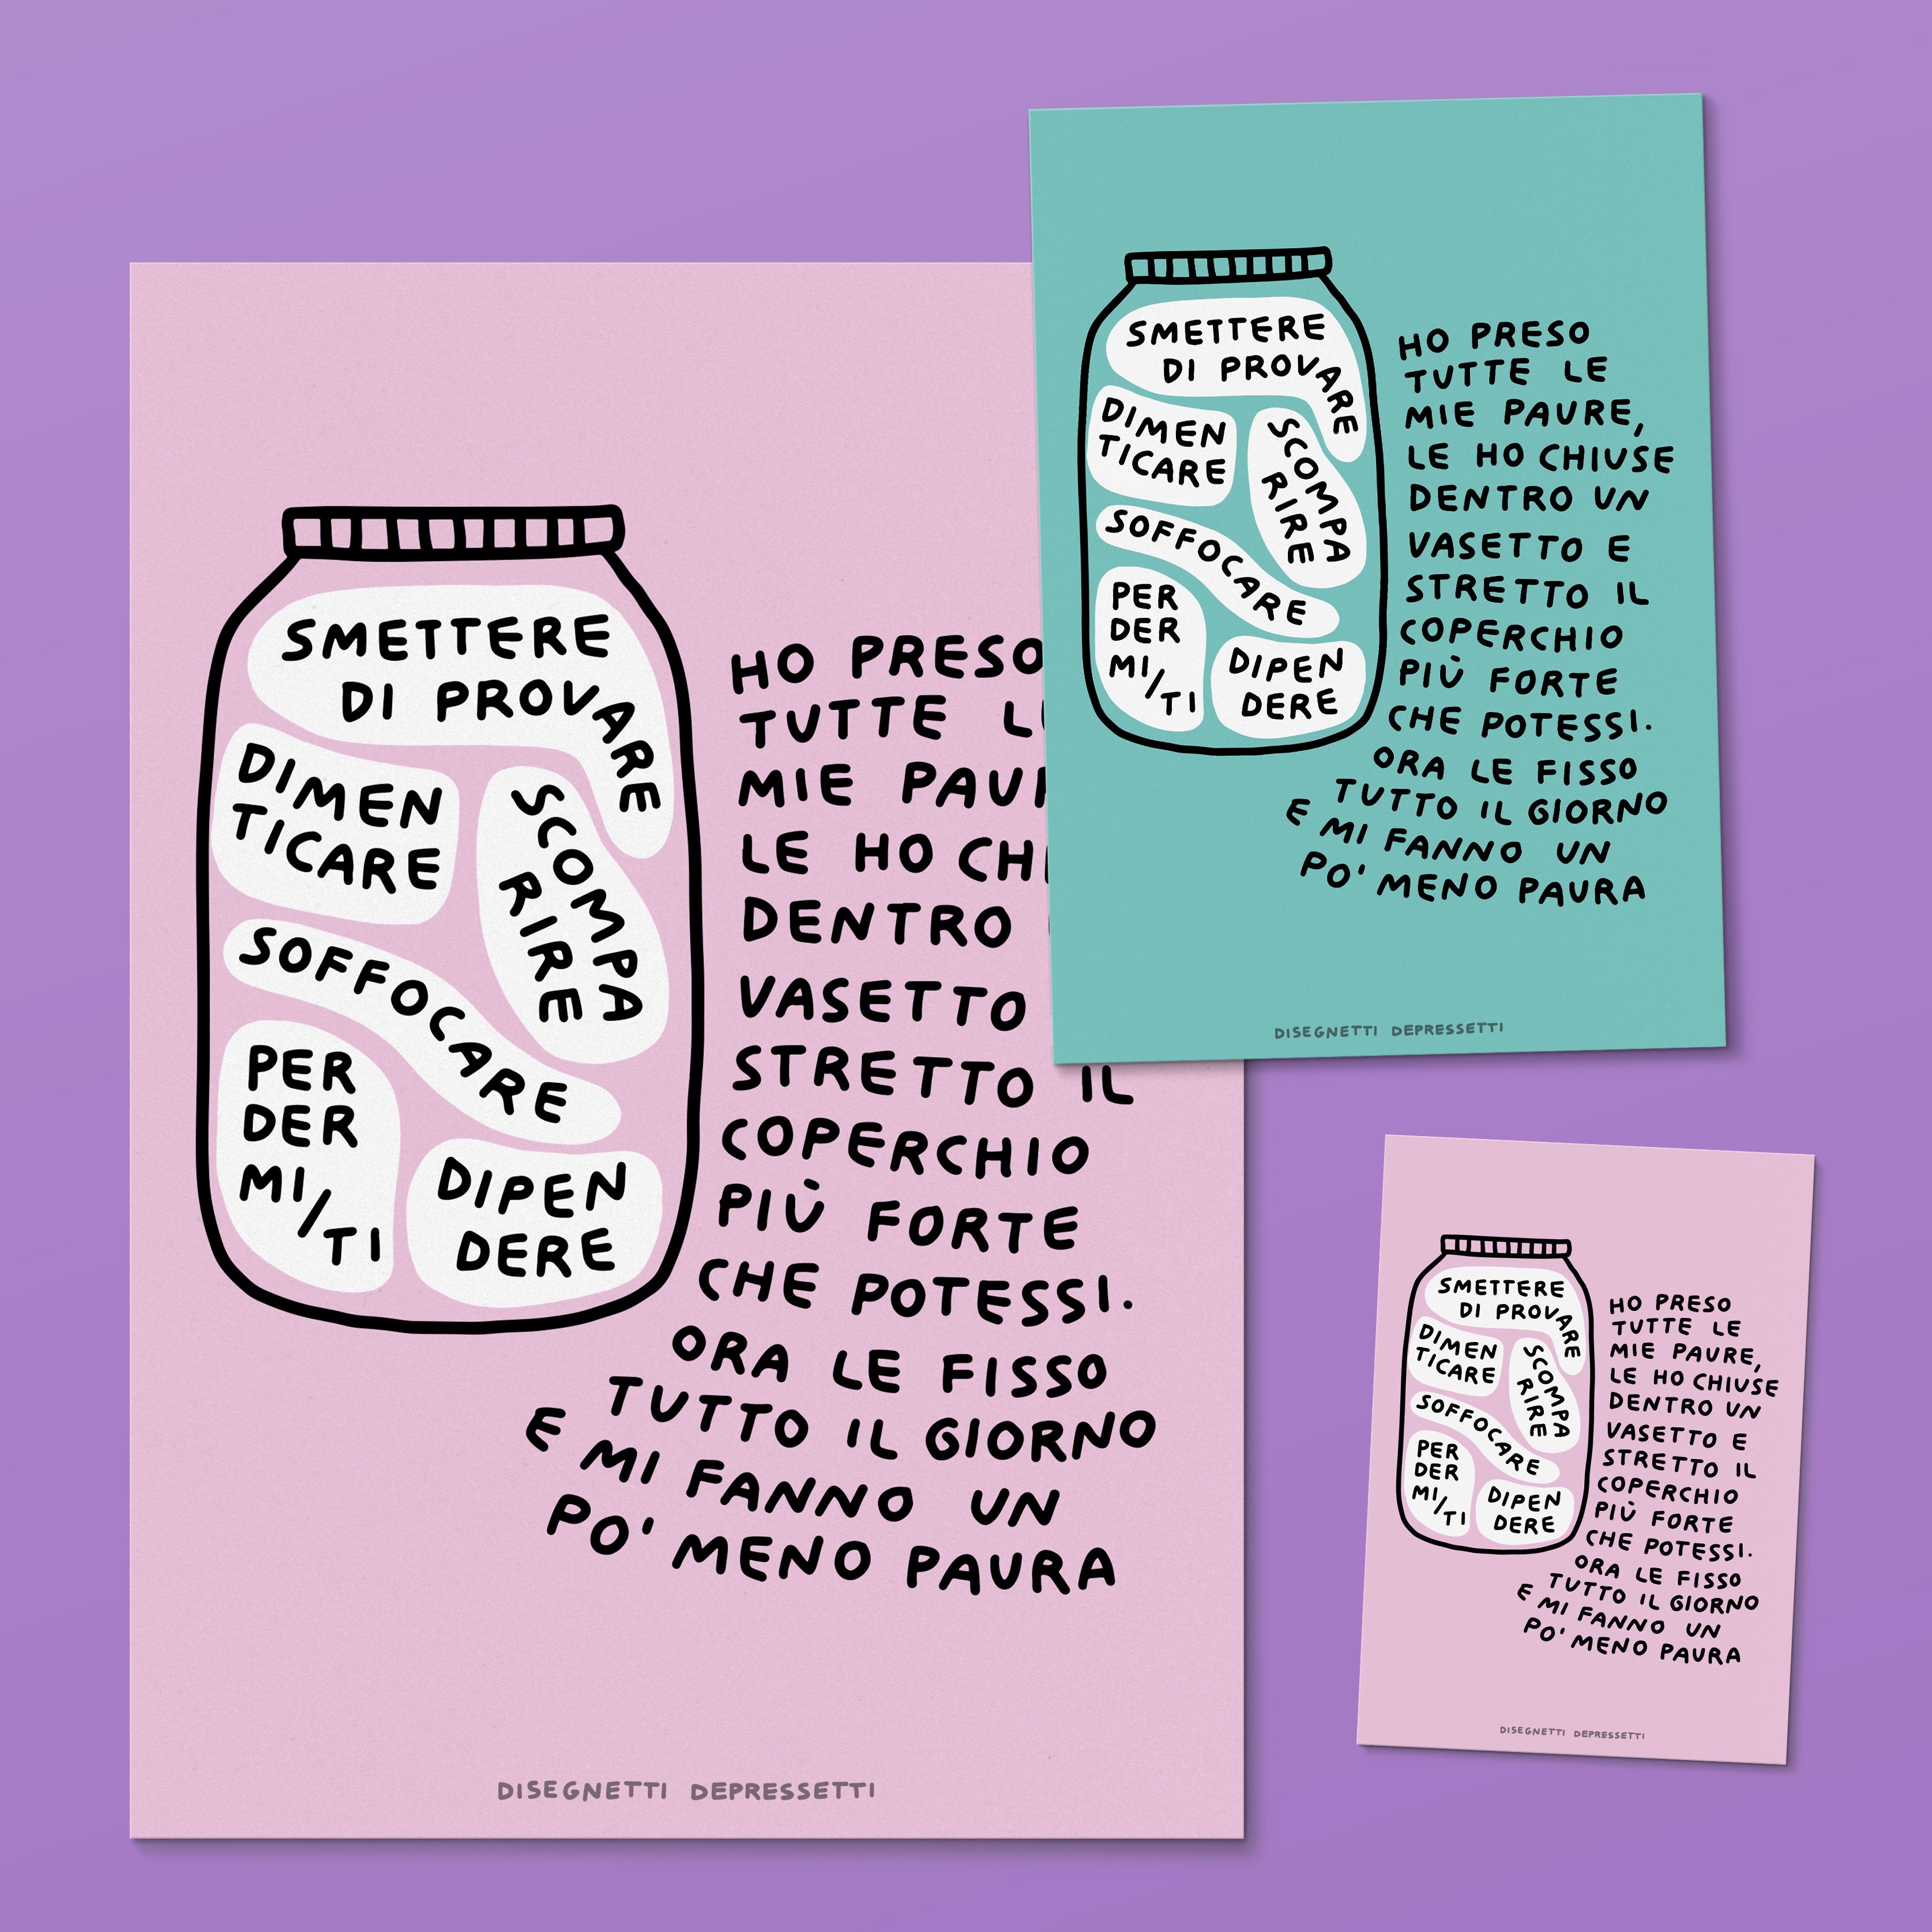 SMETTERE
DI PROVARE
DIMEN
TICARE
SCOMPA
RIRE
SOFFOCARE
PER
DER
MI/TI
DIPEN
DERE
HO PRESO
TUTTE
MIE
LE HO
DENTRO
VASETTO
STRETTO IL
COPERCHIO
PIÙ FORTE
CHE POTESSI.
ORA LE FISSO
TUTTO IL GIORNO
E MI FANNO UN
PO' MENO PAURA
DISEGNETTI DEPRESSETTI
SMETTERE
DI PROVARE
DIMEN
TICARE
SCOMPA
RIRE
SOFFOCARE
PER
DER
MI/TI
DIPEN
DERE
HO PRESO
TUTTE LE
MIE PAURE,
LE HO CHIUSE
DENTRO UN
VASETTO E
STRETTO IL
COPERCHIO
PIÙ FORTE
CHE POTESSI.
ORA LE FISSO
TUTTO IL GIORNO
E MI FANNO UN
PO' MENO PAURA
DISEGNETTI DEPRESSETTI
SMETTERE
DI PROVARE
DIMEN
TICARE
SCOMPA
RIRE
SOFFOCARE
PER
DER
MI/TI
DIPEN
DERE
HO PRESO
TUTTE LE
MIE PAURE,
LE HO CHIUSE
DENTRO UN
VASETTO E
STRETTO IL
COPERCHIO
PIÙ FORTE
CHE POTESSI.
ORA LE FISSO
TUTTO IL GIORNO
E MI FANNO UN
PO' MENO PAURA
DISEGNETTI DEPRESSETTI